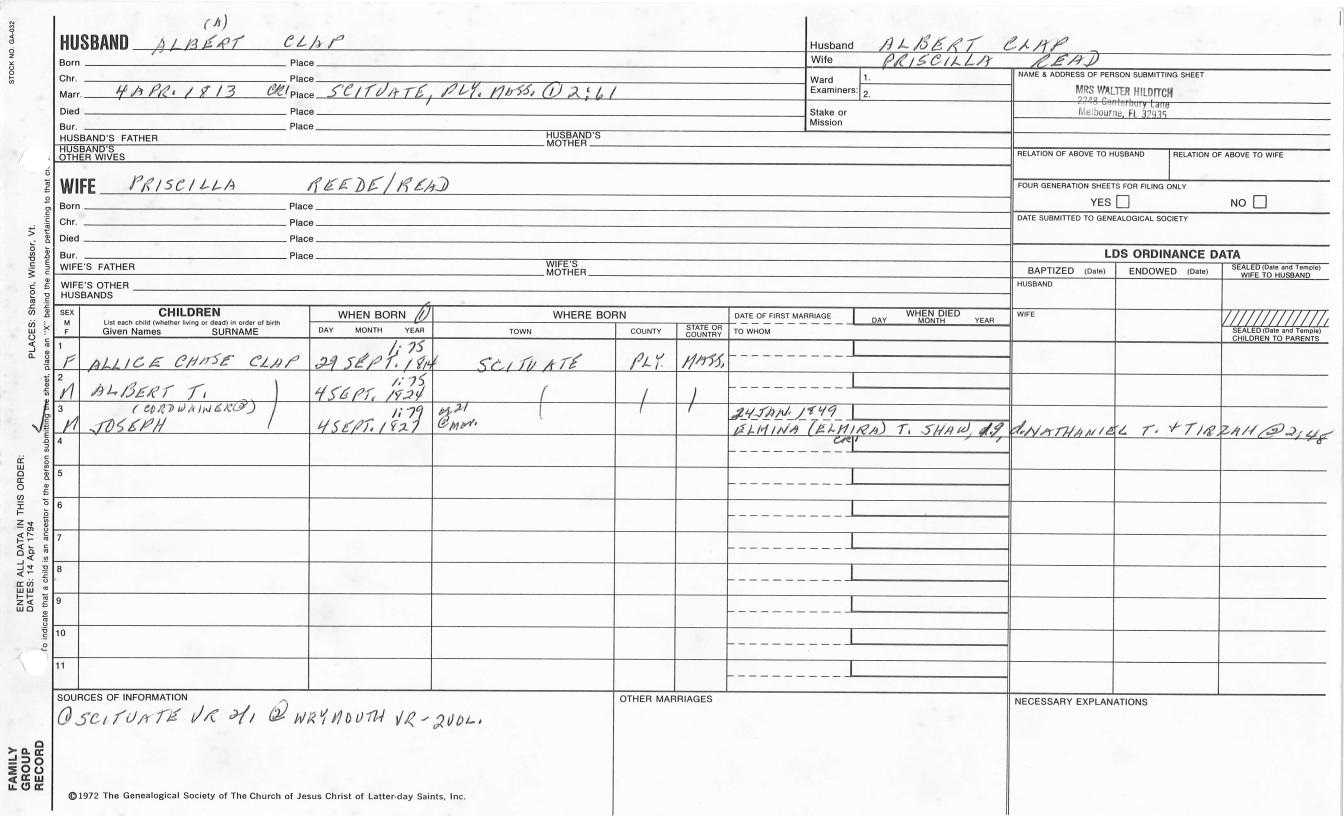 STOCK NO. GA-032
(A)
HUSBAND ALBERT CLAP
Born Place
Chr. Place
Marr. 4 APR. 1813 CR1 Place SCITUATE, PLY. MASS. ① 2:61
Died Place
Bur. Place
HUSBAND'S FATHER HUSBAND'S MOTHER
HUSBAND'S OTHER WIVES
Husband ALBERT CLAP
Wife PRISCILLA READ
Ward Examiners: 1.
2.
Stake or Mission
NAME & ADDRESS OF PERSON SUBMITTING SHEET
MRS WALTER HILDITCH
2248 Canterbury Lane
Melbourne, FL 32935
RELATION OF ABOVE TO HUSBAND RELATION OF ABOVE TO WIFE
FOUR GENERATION SHEETS FOR FILING ONLY
YES NO
DATE SUBMITTED TO GENEALOGICAL SOCIETY
WIFE PRISCILLA REEDE/READ
Born Place
Chr. Place
Died Place
Bur. Place
WIFE'S FATHER WIFE'S MOTHER
WIFE'S OTHER HUSBANDS
LDS ORDINANCE DATA
BAPTIZED (Date) ENDOWED (Date) SEALED (Date and Temple) WIFE TO HUSBAND
HUSBAND
WIFE
SEALED (Date and Temple) CHILDREN TO PARENTS
SEX M F
CHILDREN
List each child (whether living or dead) in order of birth
Given Names SURNAME
WHEN BORN ①
DAY MONTH YEAR
WHERE BORN
TOWN COUNTY STATE OR COUNTRY
DATE OF FIRST MARRIAGE
TO WHOM
WHEN DIED
DAY MONTH YEAR
1 1:75
F ALLICE CHASE CLAP 29 SEPT. 1814 SCITUATE PLY. MASS.
2 1:75
M ALBERT T. 4 SEPT. 1824
(CORDWAINER②)
3 1:79 of 21 24 JAN. 1849
M JOSEPH 4 SEPT. 1827 @mar. ELMINA (ELMIRA) T. SHAW, 19, d. NATHANIEL T. & TIRZAH ② 2:48
CR1
4
5
6
7
8
9
10
11
SOURCES OF INFORMATION
① SCITUATE VR 2/1 ② WRYMOUTH VR-2VOL.
OTHER MARRIAGES
NECESSARY EXPLANATIONS
©1972 The Genealogical Society of The Church of Jesus Christ of Latter-day Saints, Inc.
FAMILY GROUP RECORD
ENTER ALL DATA IN THIS ORDER:
DATES: 14 Apr 1794
PLACES: Sharon, Windsor, Vt.
To indicate that a child is an ancestor of the person submitting the sheet, place an "X" behind the number pertaining to that